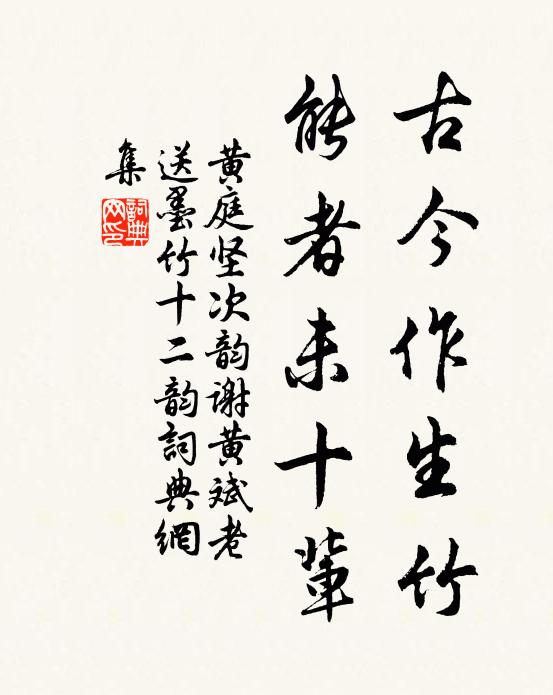 古今作生竹
能者未十輩
黄庭坚次韵谢黄斌老
送墨竹十二韵詞典網
集
詞典
网印